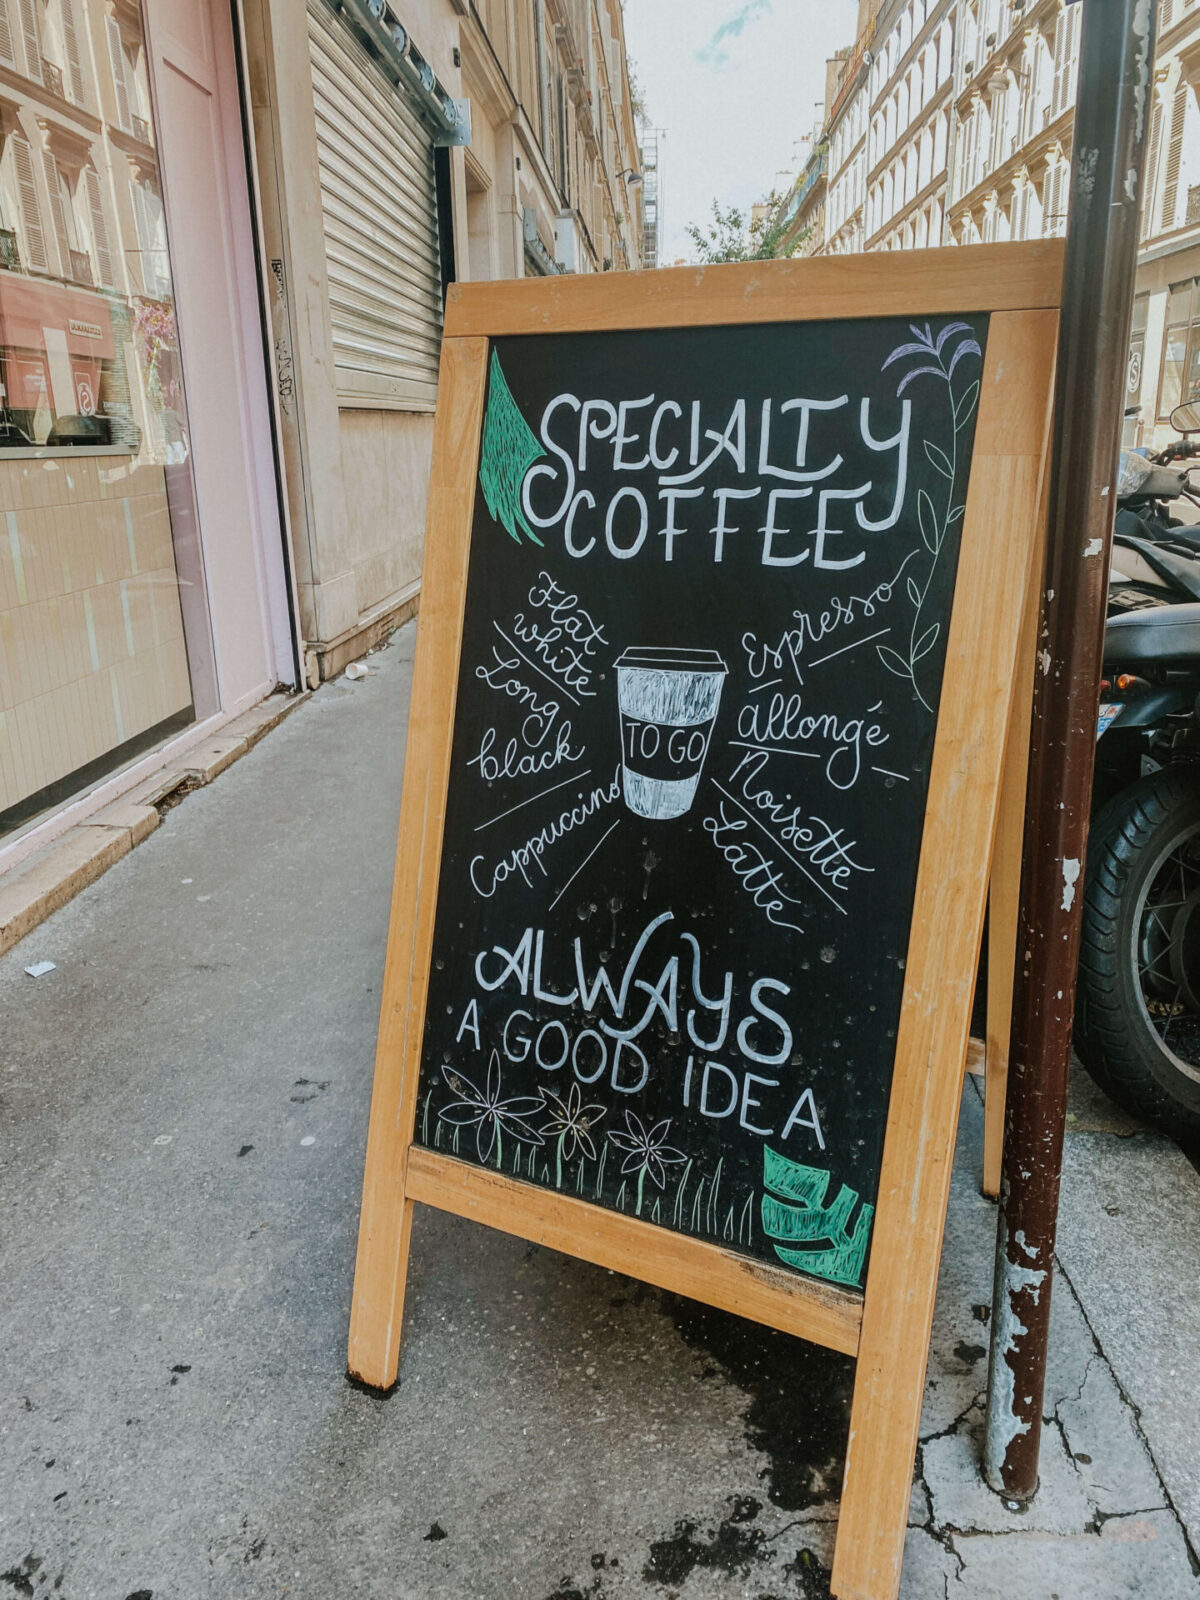 SPECIALTY
COFFEE
Flat
white
Long
black
Cappuccino
TO GO
Espresso
allongé
Noisette
Latte
ALWAYS
A GOOD IDEA